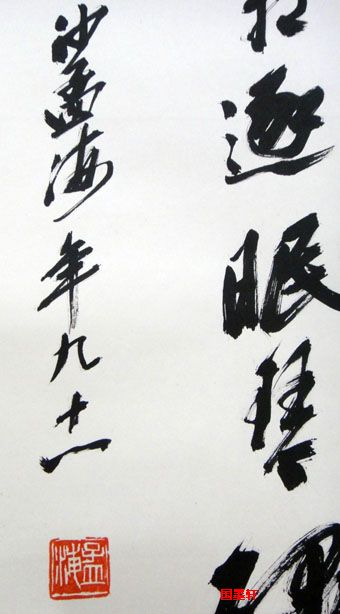 眠琴
沙孟海年九十一
孟海
国墨轩